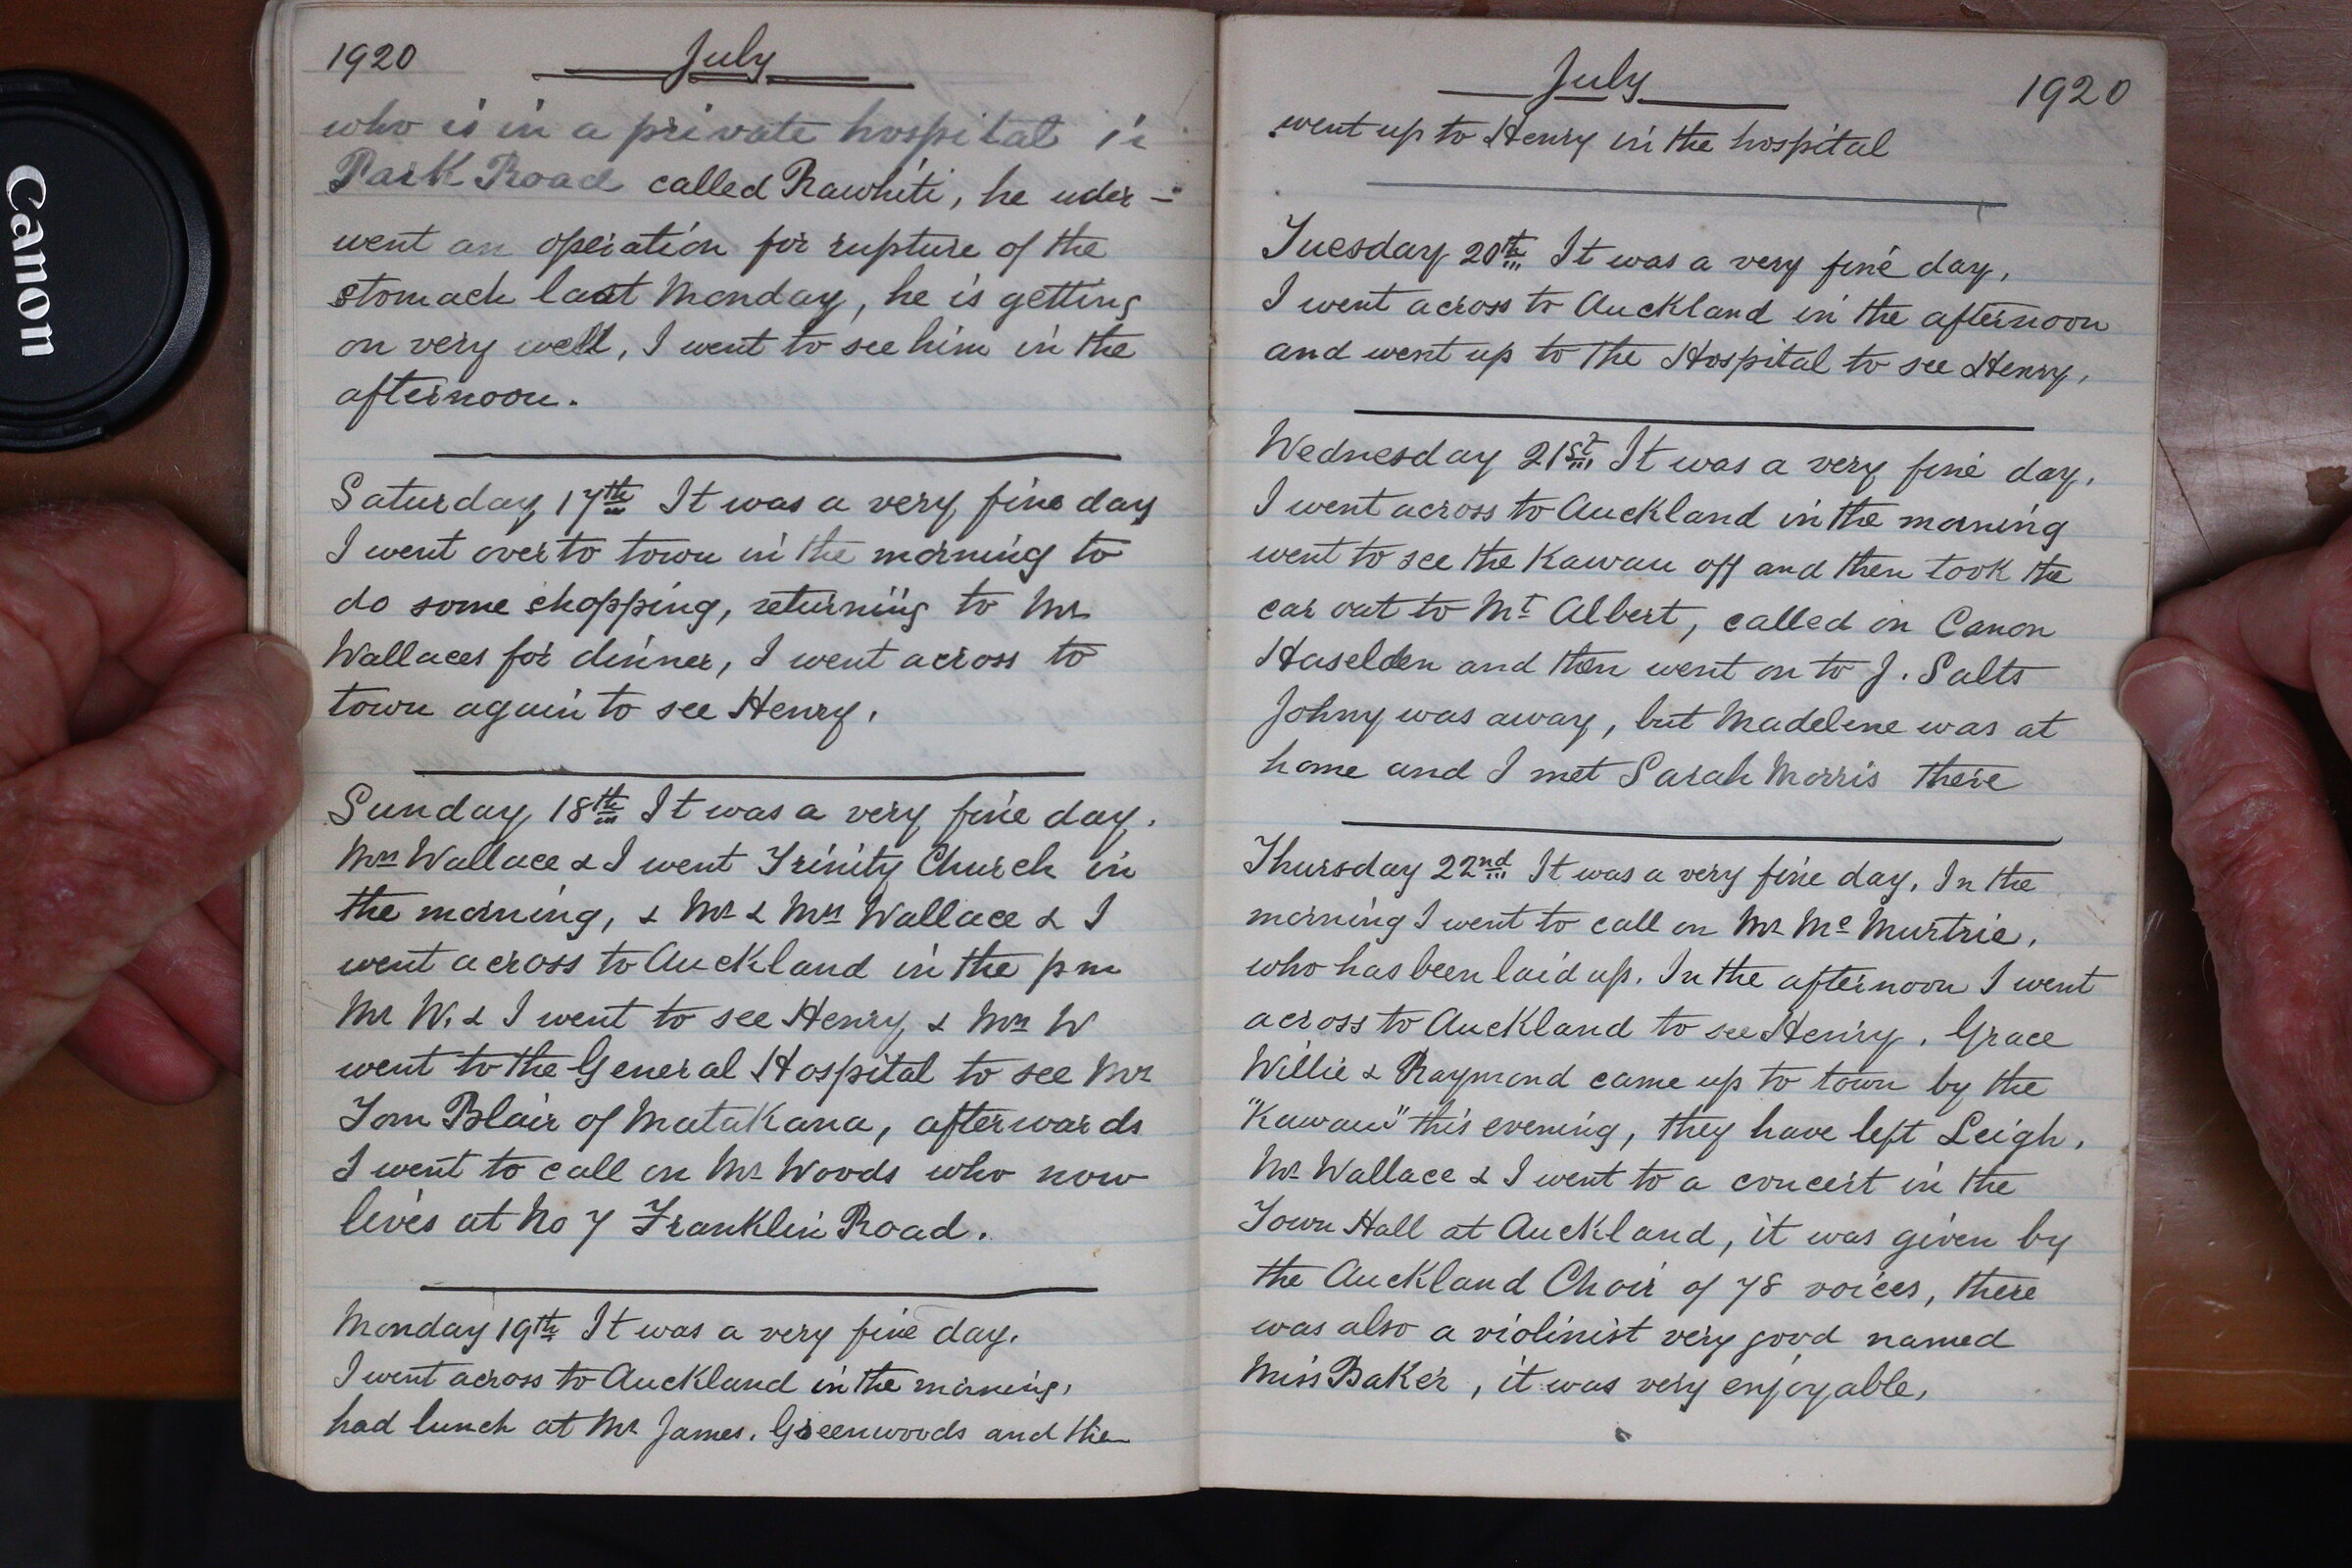 Canon
1920 July
who is in a private hospital in
Park Road called Rawhiti, he uder-
went an operation for rupture of the
stomach last Monday, he is getting
on very well, I went to see him in the
afternoon.
Saturday 17th It was a very fine day
I went over to town in the morning to
do some shopping, returning to Mr
Wallaces for dinner, I went across to
town again to see Henry.
Sunday 18th It was a very fine day.
Mrs Wallace & I went Trinity Church in
the morning, & Mr & Mrs Wallace & I
went across to Auckland in the pm
Mr W. & I went to see Henry & Mrs W
went to the General Hospital to see Mr
Tom Blair of Matakana, afterwards
I went to call on Mr Woods who now
lives at No 7 Franklin Road.
Monday 19th It was a very fine day.
I went across to Auckland in the morning,
had lunch at Mr James. Greenwoods and then
July 1920
went up to Henry in the hospital
Tuesday 20th It was a very fine day,
I went across to Auckland in the afternoon
and went up to the Hospital to see Henry,
Wednesday 21st It was a very fine day.
I went across to Auckland in the morning
went to see the Kawau off and then took the
car out to Mt Albert, called on Canon
Haselden and then went on to J. Salts
Johny was away, but Madelene was at
home and I met Sarah Morris there
Thursday 22nd It was a very fine day. In the
morning I went to call on Mr Mc Murtrie,
who has been laid up. In the afternoon I went
across to Auckland to see Henry. Grace
Willie & Raymond came up to town by the
"Kawau" this evening, they have left Leigh.
Mr Wallace & I went to a concert in the
Town Hall at Auckland, it was given by
the Auckland Choir of 78 voices, there
was also a violinist very good named
Miss Baker, it was very enjoyable,